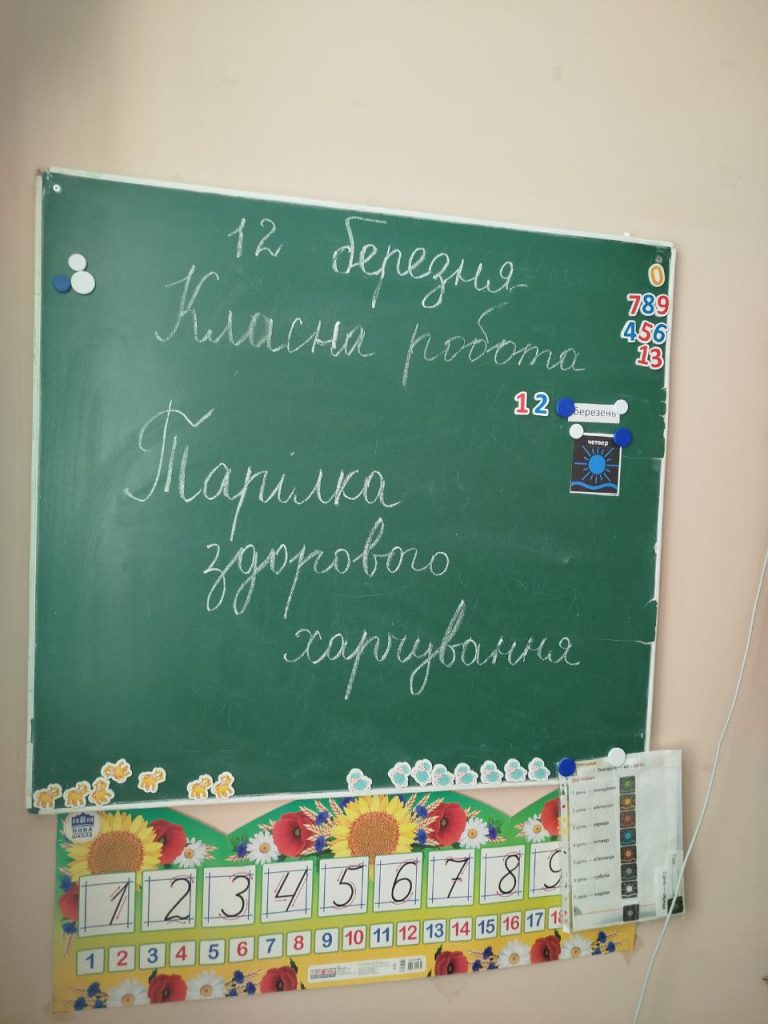 12 березня
Класна робота
Тарілка
здорового
харчування
0
789
456
13
12 березень
четвер
НОВА
1 день — понеділок
2 день — вівторок
3 день — середа
4 день — четвер
5 день — п'ятниця
6 день — субота
7 день — неділя
1 2 3 4 5 6 7 8 9
1 2 3 4 5 6 7 8 9 10 11 12 13 14 15 16 17 18